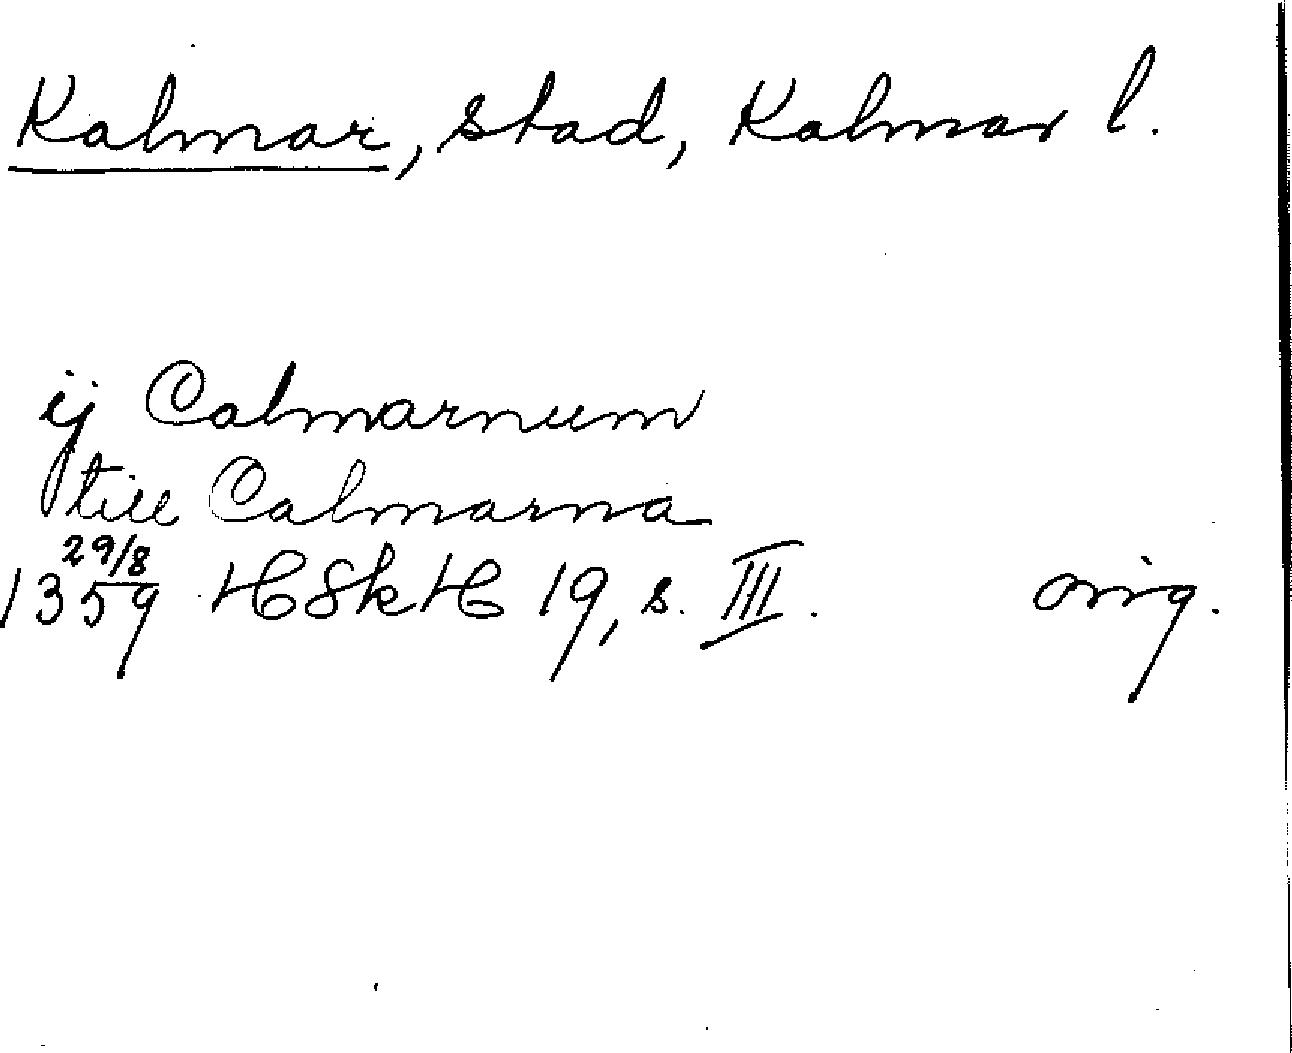 Kalmar, stad, Kalmar l.
ij Calmarnum
till Calmarna
29/8
1359 HSkH 19, s. III. orig.